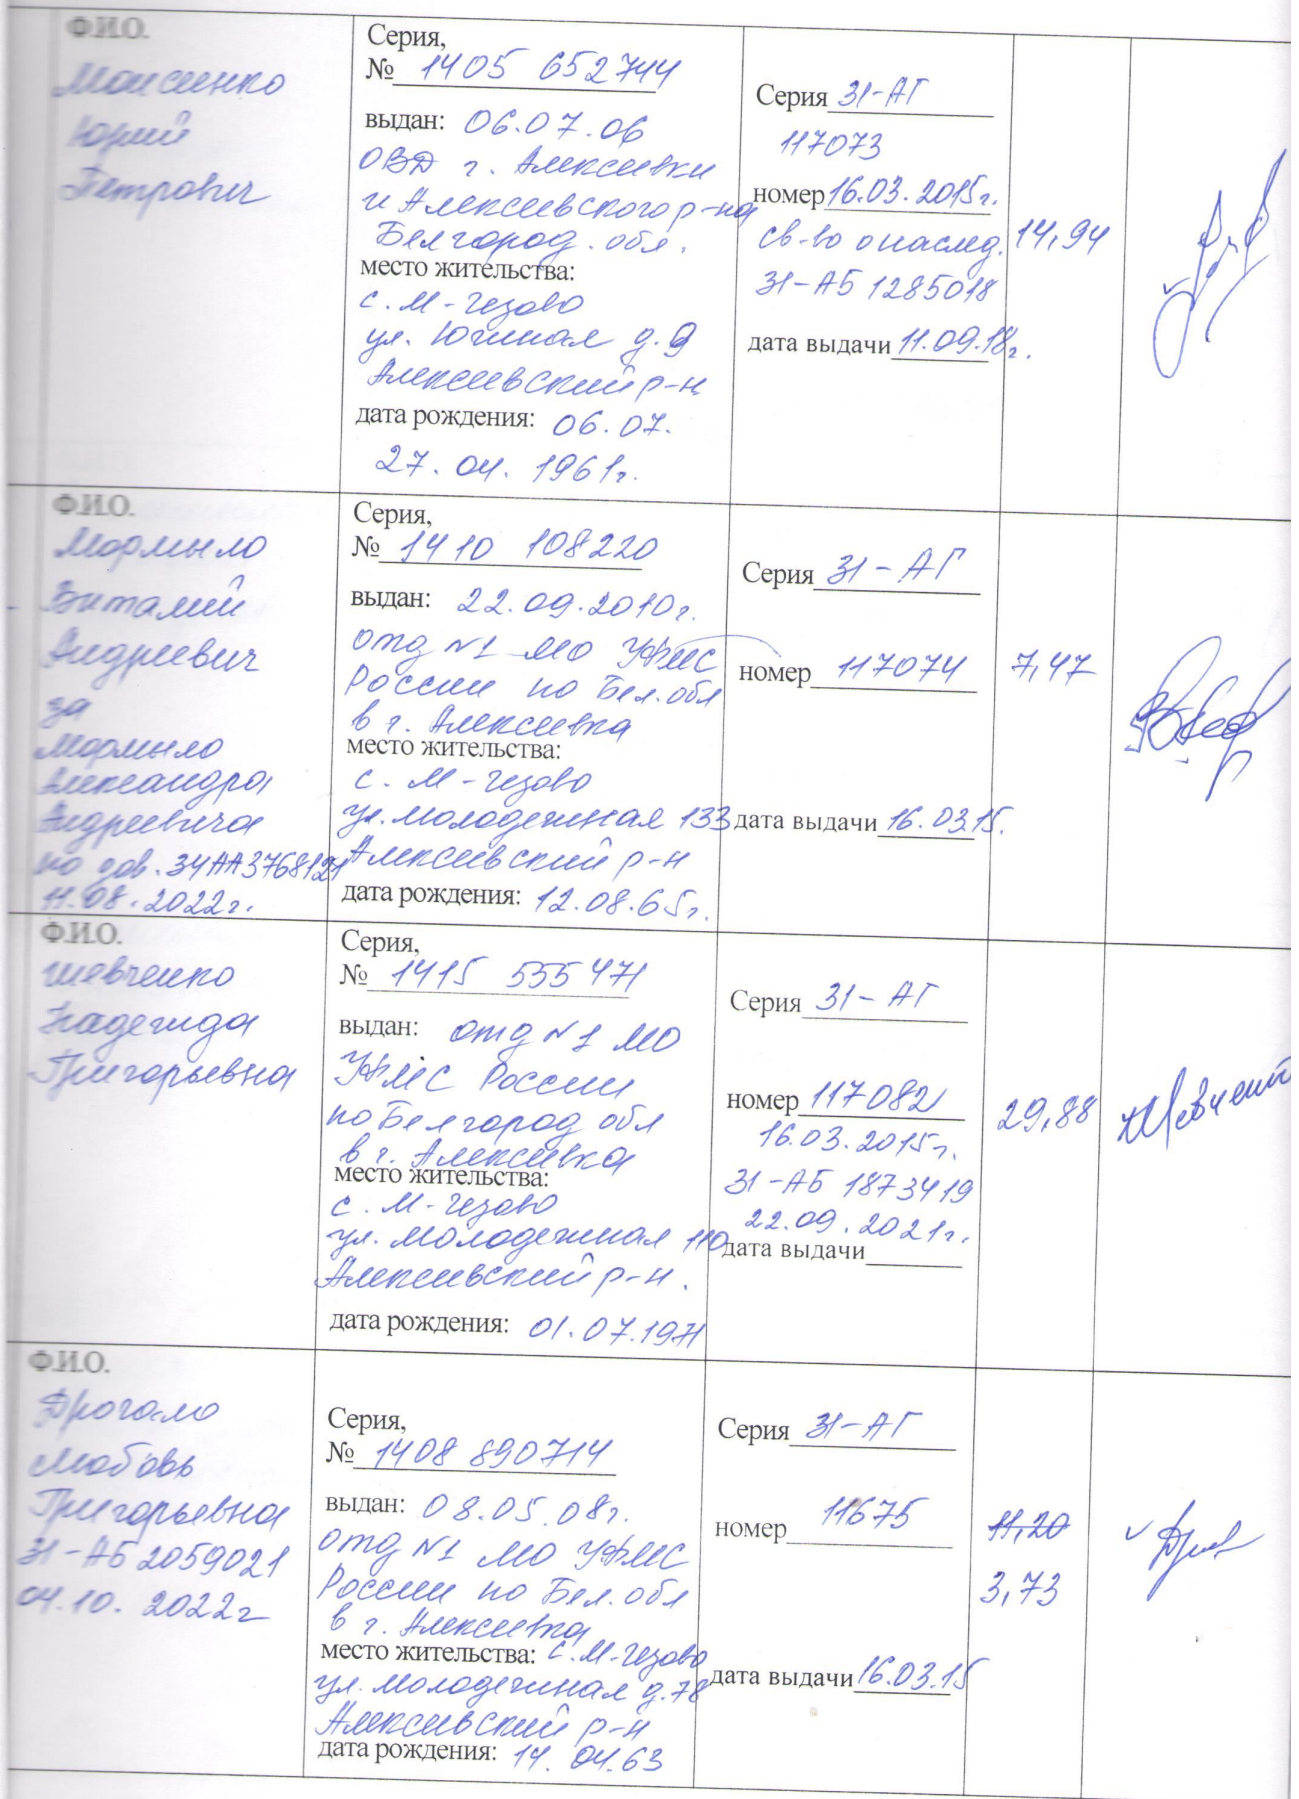 Ф.И.О.
Моисеенко
Юрий
Петрович
Серия,
№ 1405 652744
выдан: 06.07.06
ОВД г. Алексеевки
и Алексеевского р-на
Белгород. обл.
место жительства:
с. М-Чезово
ул. Южная д. 9
Алексеевский р-н
дата рождения: 06.07.
27.04.1961г.
Серия 31-АГ
117073
номер 16.03.2015г.
св-во о наслед.
31-АБ 1285018
дата выдачи 11.09.18г.
14,94
Ф.И.О.
Мормыло
Виталий
Андреевич
за
Мормыло
Александра
Андреевича
по дов. 34АА3768121
11.08.2022г.
Серия,
№ 1410 108220
выдан: 22.09.2010г.
отд №1 МО УФМС
России по Бел. обл
в г. Алексеевка
место жительства:
с. М-Чезово
ул. Молодежная 133
Алексеевский р-н
дата рождения: 12.08.65г.
Серия 31-АГ
номер 117074
дата выдачи 16.03.15.
7,47
Ф.И.О.
Шевченко
Надежда
Григорьевна
Серия,
№ 1415 555471
выдан: отд №1 МО
УФМС России
по Белгород обл
в г. Алексеевка
место жительства:
с. М-Чезово
ул. Молодежная 110
Алексеевский р-н.
дата рождения: 01.07.1971
Серия 31-АГ
номер 117082
16.03.2015г.
31-АБ 1873419
22.09.2021г.
дата выдачи
29,88
Шевченко
Ф.И.О.
Дрогало
Любовь
Григорьевна
31-АБ 2059021
04.10.2022г
Серия,
№ 1408 890714
выдан: 08.05.08г.
отд №1 МО УФМС
России по Бел. обл
в г. Алексеевка
место жительства: с. М-Чезово
ул. Молодежная д. 78
Алексеевский р-н
дата рождения: 14.04.63
Серия 31-АГ
номер 11675
дата выдачи 16.03.15
11,20
3,73